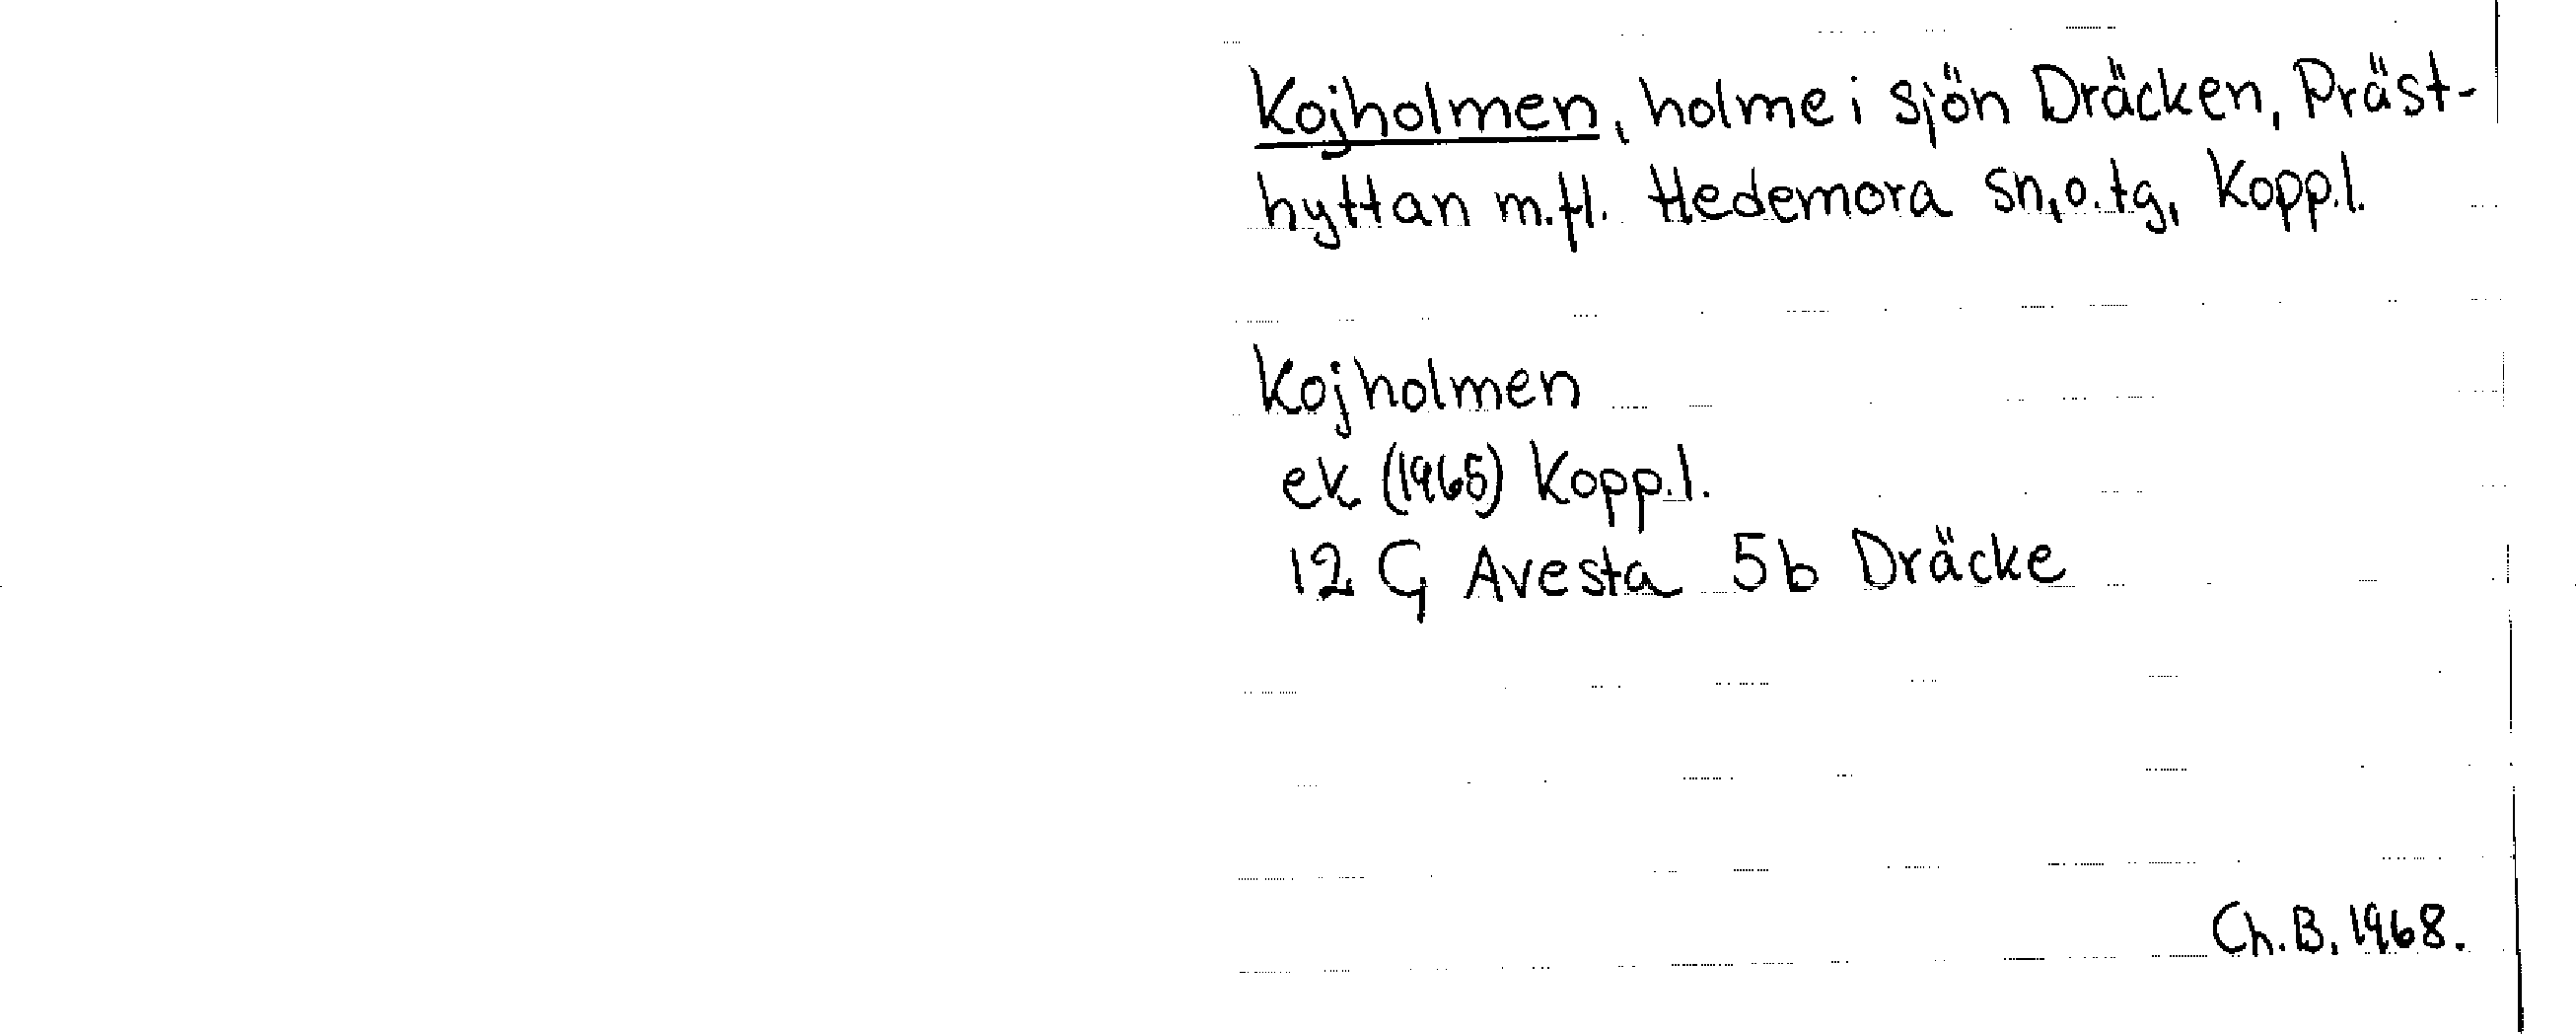 Kojholmen, holme i sjön Dräcken, Präst-
hyttan m.fl. Hedemora sn, o. tg, Kopp.l.
Kojholmen
ek (1965) Kopp.l.
12 G Avesta 5b Dräcke
Ch.B. 1968.